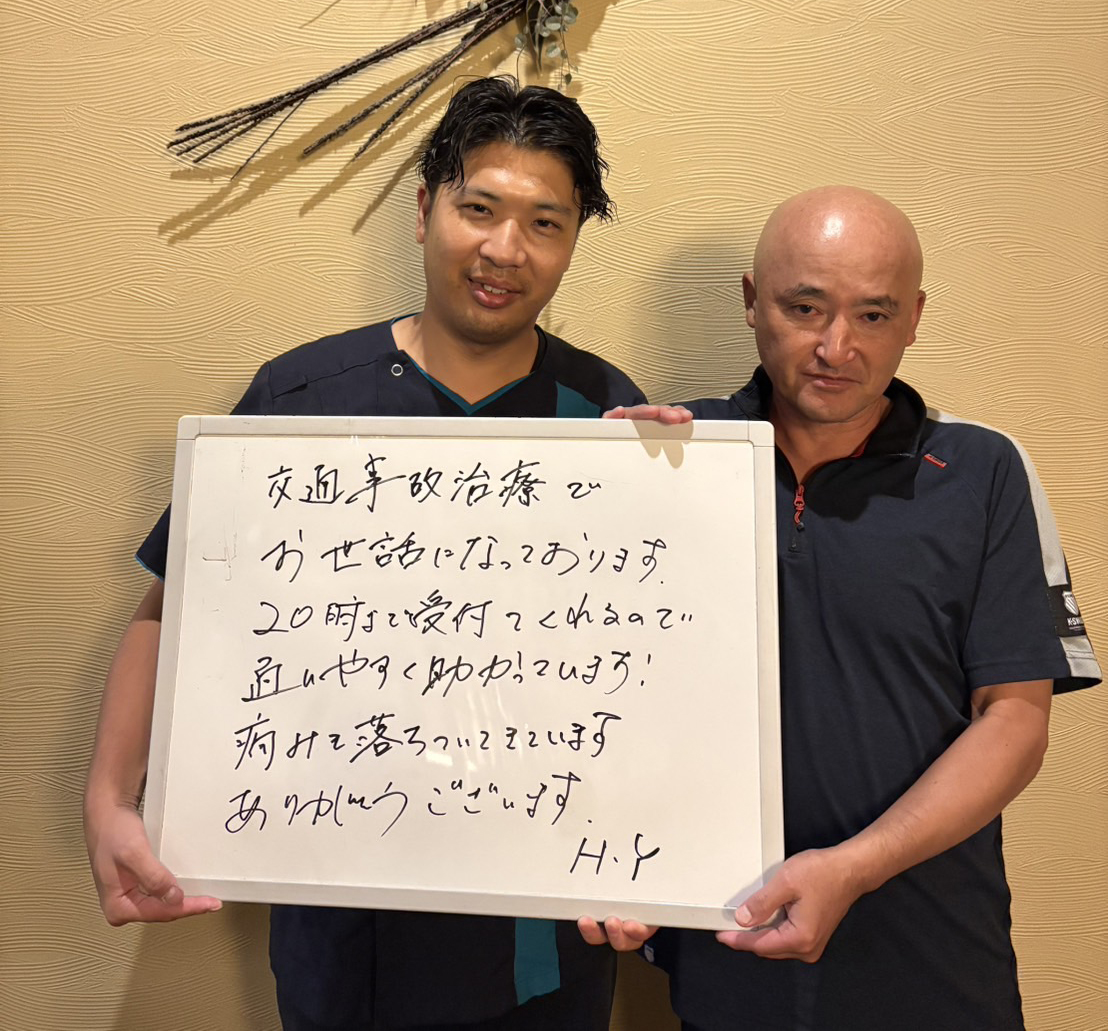 交通事故治療で
お世話になっております.
20時まで受付てくれるので
通いやすく助かっています!
痛みも落ちついてきています
ありがとうございます.
H.Y